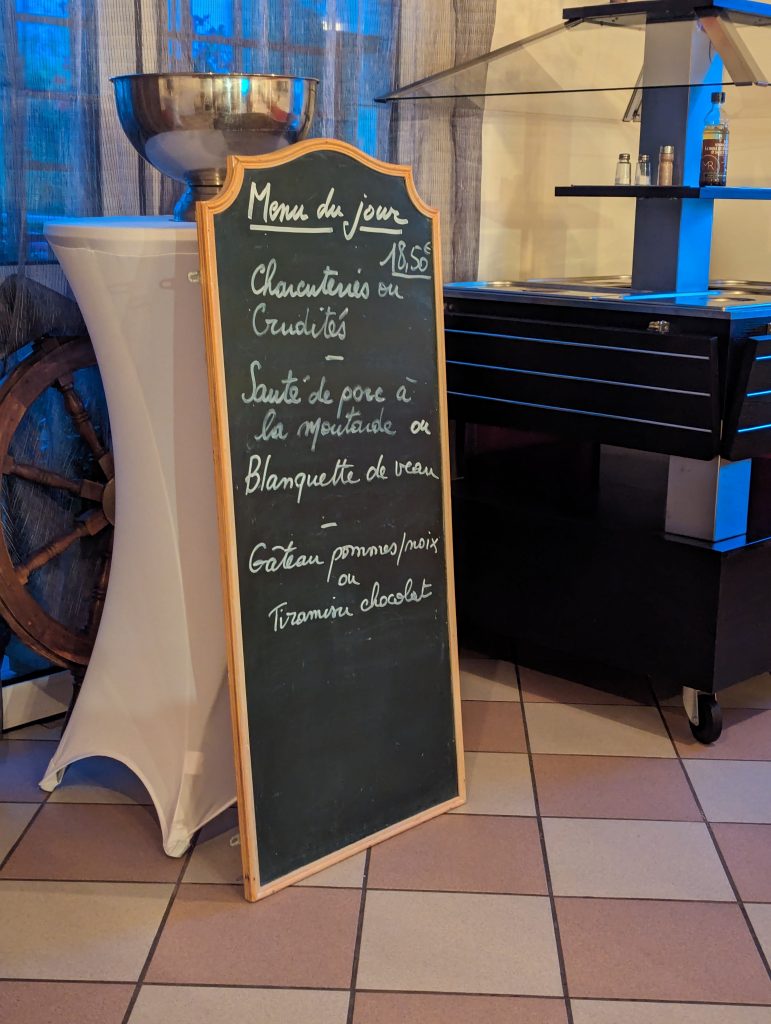 Menu du jour
18,50€
Charcuteries ou
Crudités
-
Sauté de porc à
la moutarde ou
Blanquette de veau
-
Gâteau pommes/noix
ou
Tiramisu chocolat